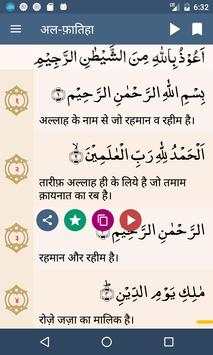 6:32
अल-फ़ातिहा
اَعُوْذُ بِاللّٰهِ مِنَ الشَّيْطٰنِ الرَّجِيْمِ
بِسْمِ اللّٰهِ الرَّحْمٰنِ الرَّحِيْمِ ۝١
१
अल्लाह के नाम से जो रहमान व रहीम है।
اَلْحَمْدُ لِلّٰهِ رَبِّ الْعٰلَمِيْنَ ۝٢
२
तारीफ़ अल्लाह ही के लिये है जो तमाम
क़ायनात का रब है।
الرَّحْمٰنِ الرَّحِيْمِ ۝٣
३
रहमान और रहीम है।
مٰلِكِ يَوْمِ الدِّيْنِ ۝٤
४
रोज़े ज़ज़ा का मालिक है।